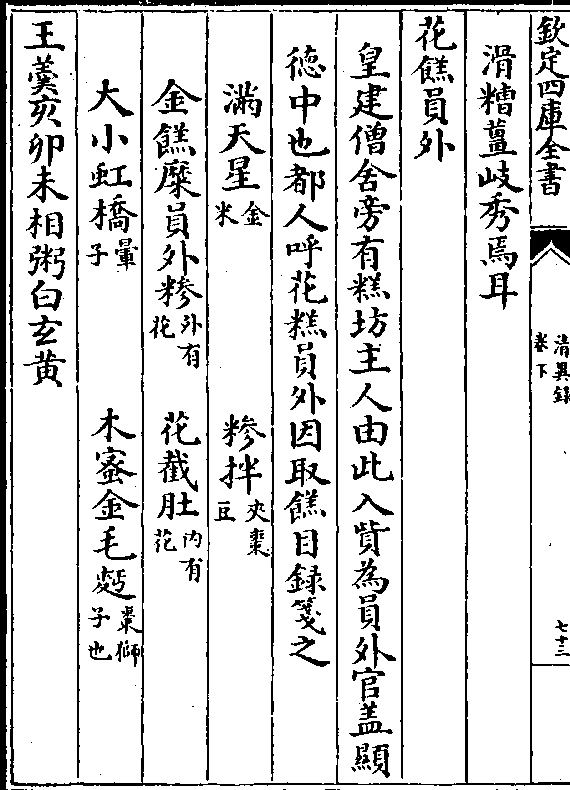 欽定四庫全書
清異録
卷下
七十三
滑糟薑歧秀焉耳
花餻員外
皇建僧舍旁有糕坊主人由此入貲為員外官盖顯
德中也都人呼花糕員外因取餻目録箋之
滿天星金米 糝拌夾棗豆
金餻糜員外糝外有花 花截肚内有花
大小虹橋暈子 木蜜金毛麫棗獅子也
王羹亥卯未相粥白玄黄